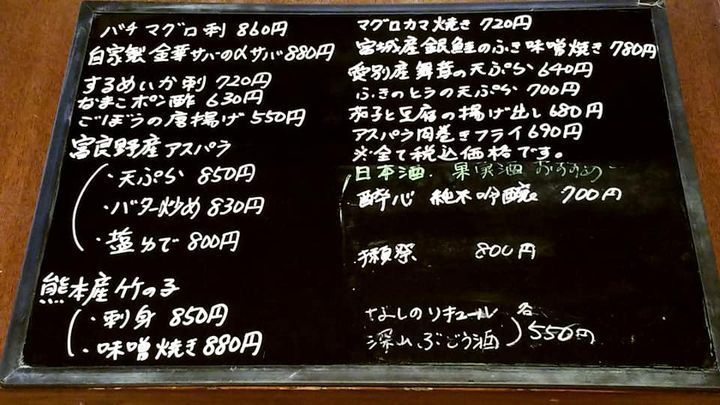 バチマグロ刺 860円
自家製 金華サバのαサバ 880円
するめいか刺 720円
なまこポン酢 630円
ごぼうの唐揚げ 550円
富良野産アスパラ
・天ぷら 850円
・バター炒め 830円
・塩ゆで 800円
熊本産竹の子
・刺身 850円
・味噌焼き 880円
マグロカマ焼き 720円
宮城産銀鮭のふき味噌焼き 780円
愛別産舞茸の天ぷら 640円
ふきのとうの天ぷら 700円
茄子と豆腐の揚げ出し 680円
アスパラ肉巻きフライ 690円
※全て税込価格です。
日本酒、果実酒 おすすめ
酔心 純米吟醸 700円
獺祭 800円
なしのリキュール 各
深山ぶどう酒 550円